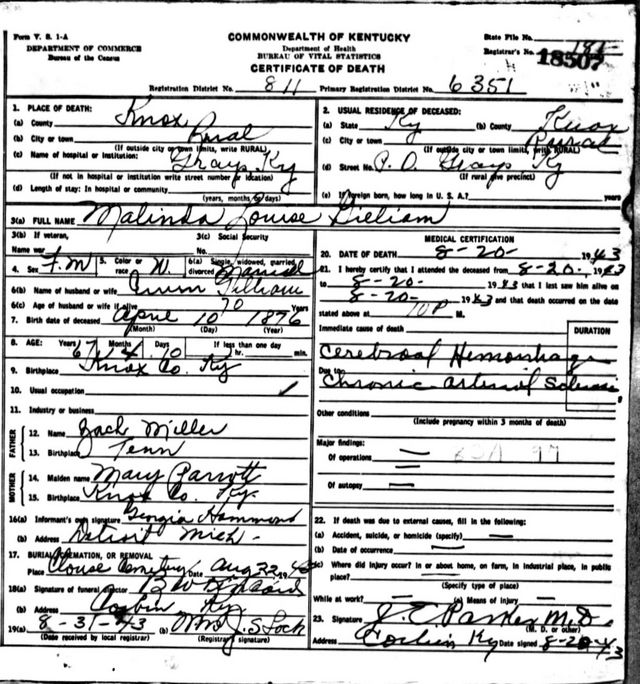 Form V. S. 1-A
DEPARTMENT OF COMMERCE
Bureau of the Census
COMMONWEALTH OF KENTUCKY
Department of Health
BUREAU OF VITAL STATISTICS
CERTIFICATE OF DEATH
State File No.
Registrar's No.
18507
Registration District No. 811 Primary Registration District No. 6351
1. PLACE OF DEATH:
(a) County Knox
(b) City or town Rural
(If outside city or town limits, write RURAL)
(c) Name of hospital or institution: Grays, Ky
(If not in hospital or institution write street number or location)
(d) Length of stay: In hospital or community
(years, months or days)
2. USUAL RESIDENCE OF DECEASED:
(a) State Ky (b) County Knox
(c) City or town Rural
(If outside city or town limits, write RURAL)
(d) Street No. P. O. Grays Ky
(If rural give precinct)
(e) If foreign born, how long in U. S. A.? (years)
3(a) FULL NAME Malinda Louise Gilliam
3(b) If veteran,
Name war
3(c) Social Security
No.
4. Sex 5. Color or race W. 6(a) Single, widowed, married, divorced Married
6(b) Name of husband or wife Gilliam
6(c) Age of husband or wife if alive 70 Years
7. Birth date of deceased April 10 1876
(Month) (Day) (Year)
8. AGE: Years 67 Months 4 Days 10 If less than one day
hr. min.
9. Birthplace Knox Co. Ky
10. Usual occupation
11. Industry or business
FATHER
12. Name Zach Miller
13. Birthplace Tenn
MOTHER
14. Maiden name Mary Parrott
15. Birthplace Knox Co. Ky.
16(a) Informant's own signature Georgia Hammond
(b) Address Detroit Mich-
17. BURIAL, CREMATION, OR REMOVAL
Place Clouse Cemetery Date Aug 22 1943
18(a) Signature of funeral director
(b) Address Corbin Ky.
19(a) 8-31-43 (b) Mrs J. S. Lock
(Date received by local registrar) (Registrar's signature)
MEDICAL CERTIFICATION
20. DATE OF DEATH 8-20- 1943
21. I hereby certify that I attended the deceased from 8-20-, 1943
to 8-20- 1943 that I last saw him alive on
8-20- 1943 and that death occurred on the date
stated above at 10P M.
Immediate cause of death
DURATION
Cerebroal Hemorrhage
Due to
Chronic arterial Sclerosis
Other conditions
(Include pregnancy within 3 months of death)
Major findings:
Of operations
Of autopsy
22. If death was due to external causes, fill in the following:
(a) Accident, suicide, or homicide (specify)
(b) Date of occurrence
(c) Where did injury occur? In or about home, on farm, in industrial place, in public
place?
(Specify type of place)
While at work? (e) Means of injury
23. Signature J. E. Parker M.D.
(M. D. or other)
Address Corbin Ky Date signed 8-20-43